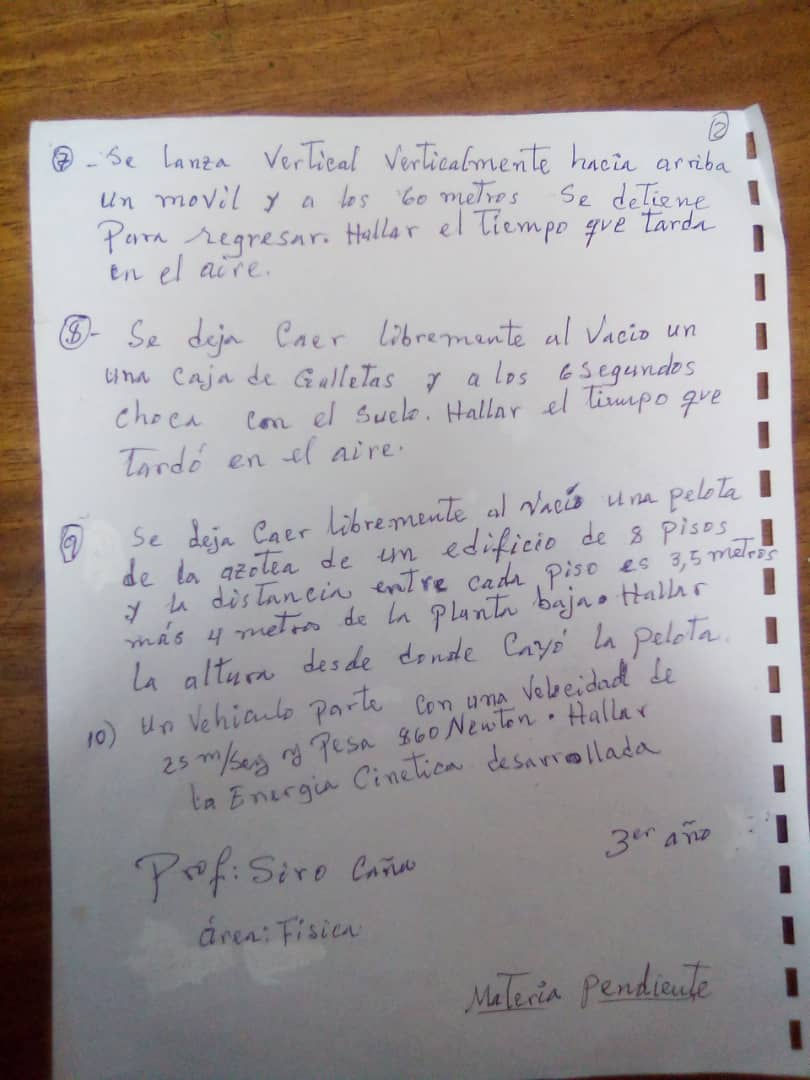 ②
⑦ - Se Lanza Vertical Verticalmente hacia arriba
un movil y a los 60 metros Se detiene
Para regresar. Hallar el Tiempo que Tarda
en el aire.
⑧- Se deja Caer libremente al Vacio un
una Caja de Galletas y a los 6 Segundos
Choca con el Suelo. Hallar el Tiempo que
Tardó en el aire.
⑨ Se deja Caer libremente al Vacio una pelota
de la azotea de un edificio de 8 Pisos
y la distancia entre cada Piso es 3,5 metros
más 4 metros de la Planta baja. Hallar
La altura desde donde Cayó la pelota.
10) Un Vehiculo parte con una Velocidad de
25 m/seg y Pesa 860 Newton. Hallar
la Energia Cinetica desarrollada
3er año
Prof: Siro Caña
área: Fisica
Materia Pendiente